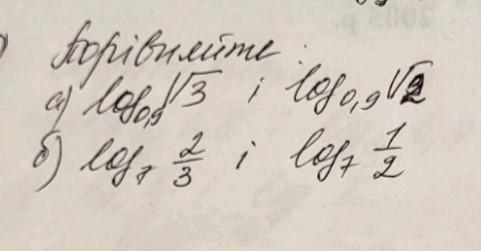 Порівняйте:
а) log₀,₉ √3 і log₀,₉ √2
б) log₇ 2/3 і log₇ 1/2